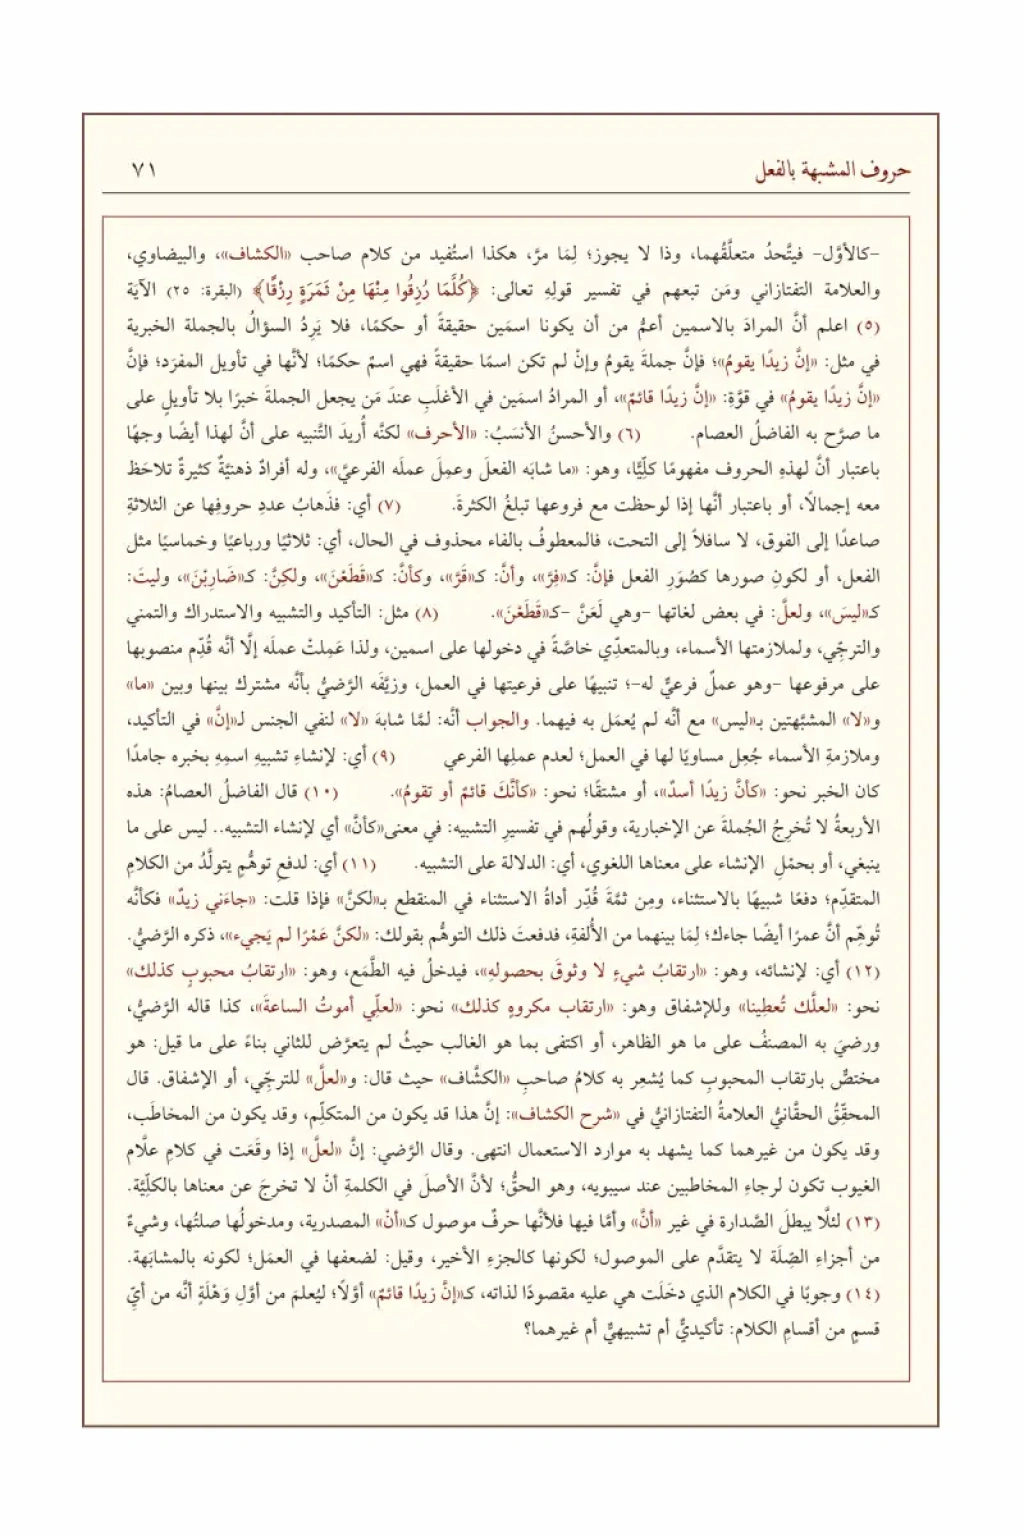 حروف المشبهة بالفعل ٧١
-كالأوَّل- فيتَّحدُ متعلَّقُهما، وذا لا يجوز؛ لِمَا مرَّ، هكذا استُفيد من كلام صاحب «الكشاف»، والبيضاوي،
والعلامة التفتازاني ومَن تبعهم في تفسير قولِهِ تعالى: ﴿كُلَّمَا رُزِقُوا مِنْهَا مِنْ ثَمَرَةٍ رِزْقًا﴾ (البقرة: ٢٥) الآيَة
(٥) اعلم أنَّ المرادَ بالاسمين أعمُّ من أن يكونا اسمَين حقيقةً أو حكمًا، فلا يَرِدُ السؤالُ بالجملة الخبرية
في مثل: «إنَّ زيدًا يقومُ»؛ فإنَّ جملةَ يقومُ وإنْ لم تكن اسمًا حقيقةً فهي اسمٌ حكمًا؛ لأنَّها في تأويل المفرَد؛ فإنَّ
«إنَّ زيدًا يقومُ» في قوَّةِ: «إنَّ زيدًا قائمٌ»، أو المرادُ اسمَين في الأغلَبِ عندَ مَن يجعل الجملةَ خبرًا بلا تأويلٍ على
ما صرَّح به الفاضلُ العصام. (٦) والأحسنُ الأنسَبُ: «الأحرف» لكنَّه أُريدَ التَّنبيه على أنَّ لهذا أيضًا وجهًا
باعتبار أنَّ لهذهِ الحروف مفهومًا كلِّيًّا، وهو: «ما شابَه الفعلَ وعمِلَ عملَه الفرعيَّ»، وله أفرادٌ ذهنيَّةٌ كثيرةٌ تلاحَظ
معه إجمالًا، أو باعتبار أنَّها إذا لوحظت مع فروعها تبلغُ الكثرةَ. (٧) أي: فذَهابُ عددِ حروفِها عن الثلاثةِ
صاعدًا إلى الفوق، لا سافلًا إلى التحت، فالمعطوفُ بالفاء محذوف في الحال، أي: ثلاثيًا ورباعيًا وخماسيًا مثل
الفعل، أو لكونِ صورها كصُوَرِ الفعل فإنَّ: كـ«فِرَّ»، وأنَّ: كـ«قَرَّ»، وكأنَّ: كـ«قَطَعْنَ»، ولكِنَّ: كـ«ضَارِبْنَ»، وليتَ:
كـ«ليسَ»، ولعلَّ: في بعض لغاتها -وهي لَعَنَّ -كـ«قَطَعْنَ». (٨) مثل: التأكيد والتشبيه والاستدراك والتمني
والترجِّي، ولملازمتها الأسماء، وبالمتعدِّي خاصَّةً في دخولها على اسمين، ولذا عَمِلتْ عملَه إلَّا أنَّه قُدِّم منصوبها
على مرفوعها -وهو عملٌ فرعيٌّ له-؛ تنبيهًا على فرعيتها في العمل، وزيَّفَه الرَّضيُّ بأنَّه مشترك بينها وبين «ما»
و«لا» المشبَّهتين بـ«ليس» مع أنَّه لم يُعمَل به فيهما. والجواب أنَّه: لمَّا شابهَ «لا» لنفي الجنس لـ«إنَّ» في التأكيد،
وملازمةِ الأسماء جُعِل مساويًا لها في العمل؛ لعدم عملِها الفرعي (٩) أي: لإنشاءِ تشبيهِ اسمِهِ بخبره جامدًا
كان الخبر نحو: «كأنَّ زيدًا أسدٌ»، أو مشتقًا؛ نحو: «كأنَّكَ قائمٌ أو تقومُ». (١٠) قال الفاضلُ العصامُ: هذه
الأربعةُ لا تُخرِجُ الجُملةَ عن الإخبارية، وقولُهم في تفسيرِ التشبيه: في معنى«كأنَّ» أي لإنشاء التشبيه.. ليس على ما
ينبغي، أو بحمْلِ الإنشاء على معناها اللغوي، أي: الدلالة على التشبيه. (١١) أي: لدفعِ توهُّمٍ يتولَّدُ من الكلامِ
المتقدِّم؛ دفعًا شبيهًا بالاستثناء، ومِن ثمَّةَ قُدِّر أداةُ الاستثناء في المنقطع بـ«لكنَّ» فإذا قلت: «جاءَني زيدٌ» فكأنَّه
تُوهِّم أنَّ عمرًا أيضًا جاءك؛ لِمَا بينهما من الأُلفةِ، فدفعتَ ذلك التوهُّم بقولك: «لكنَّ عَمْرًا لم يَجيء»، ذكره الرَّضيُّ.
(١٢) أي: لإنشائه، وهو: «ارتقابُ شيءٍ لا وثوقَ بحصولهِ»، فيدخلُ فيه الطَّمَع، وهو: «ارتقابُ محبوبٍ كذلك»
نحو: «لعلَّك تُعطِينا» وللإشفاق وهو: «ارتقاب مكروهٍ كذلك» نحو: «لعلِّي أموتُ الساعةَ»، كذا قاله الرَّضيُّ،
ورضيَ به المصنفُ على ما هو الظاهر، أو اكتفى بما هو الغالب حيثُ لم يتعرَّض للثاني بناءً على ما قيل: هو
مختصٌّ بارتقاب المحبوبِ كما يُشعِر به كلامُ صاحبِ «الكشَّاف» حيث قال: و«لعلَّ» للترجِّي، أو الإشفاق. قال
المحقِّقُ الحقَّانيُّ العلامةُ التفتازانيُّ في «شرح الكشاف»: إنَّ هذا قد يكون من المتكلِّم، وقد يكون من المخاطَب،
وقد يكون من غيرهما كما يشهد به موارد الاستعمال انتهى. وقال الرَّضي: إنَّ «لعلَّ» إذا وقَعَت في كلامِ علَّام
الغيوب تكون لرجاءِ المخاطبين عند سيبويه، وهو الحقُّ؛ لأنَّ الأصلَ في الكلمةِ أنْ لا تخرجَ عن معناها بالكلِّيَّة.
(١٣) لئلَّا يبطلَ الصَّدارة في غير «أنَّ» وأمَّا فيها فلأنَّها حرفٌ موصول كـ«أنْ» المصدرية، ومدخولُها صلتُها، وشيءٌ
من أجزاءِ الصِّلَة لا يتقدَّم على الموصول؛ لكونها كالجزءِ الأخير، وقيل: لضعفها في العمَل؛ لكونه بالمشابَهة.
(١٤) وجوبًا في الكلام الذي دخَلَت هي عليه مقصودًا لذاته، كـ«إنَّ زيدًا قائمٌ» أوَّلًا؛ ليُعلمَ من أوَّلِ وَهْلَةٍ أنَّه من أيِّ
قسمٍ من أقسامِ الكلام: تأكيديٌّ أم تشبيهيٌّ أم غيرهما؟